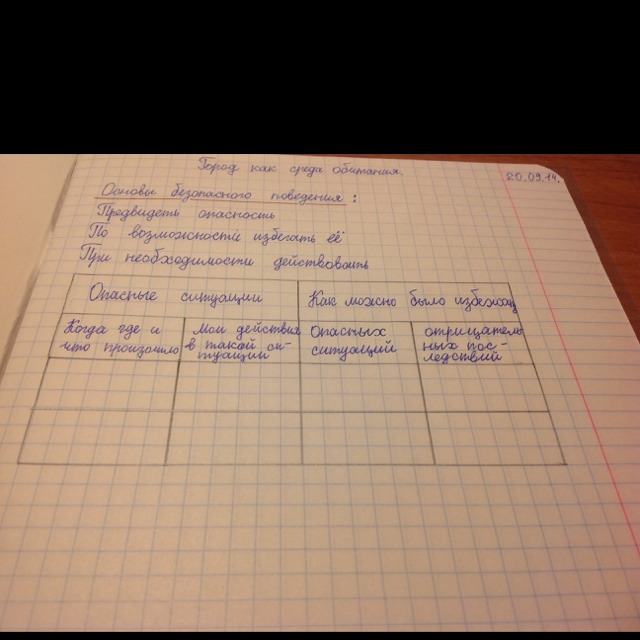 Город как среда обитания.
20.09.14.
Основы безопасного поведения:
Предвидеть опасность
По возможности избегать её
При необходимости действовать
Опасные ситуации
Как можно было избежать
Когда где и
что произошло
мои действия
в такой си-
туации
Опасных
ситуаций
отрицатель
ных пос-
ледствий